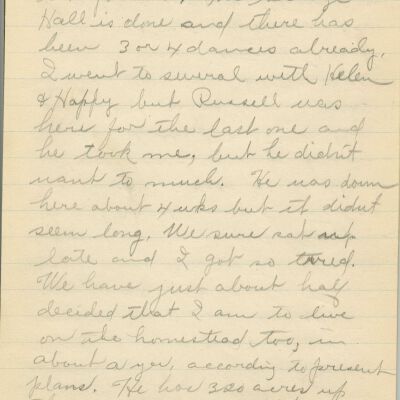 Hall is done and there has
been 3 or 4 dances already.
I went to several with Helen
& Happy but Russell was
here for the last one and
he took me, but he didn't
want to much. He was down
here about 4 wks but it didnt
seem long. We sure sat up
late and I got so tired.
We have just about half
decided that I am to live
on the homestead too, in
about a yer, according to present
plans. He has 320 acres up